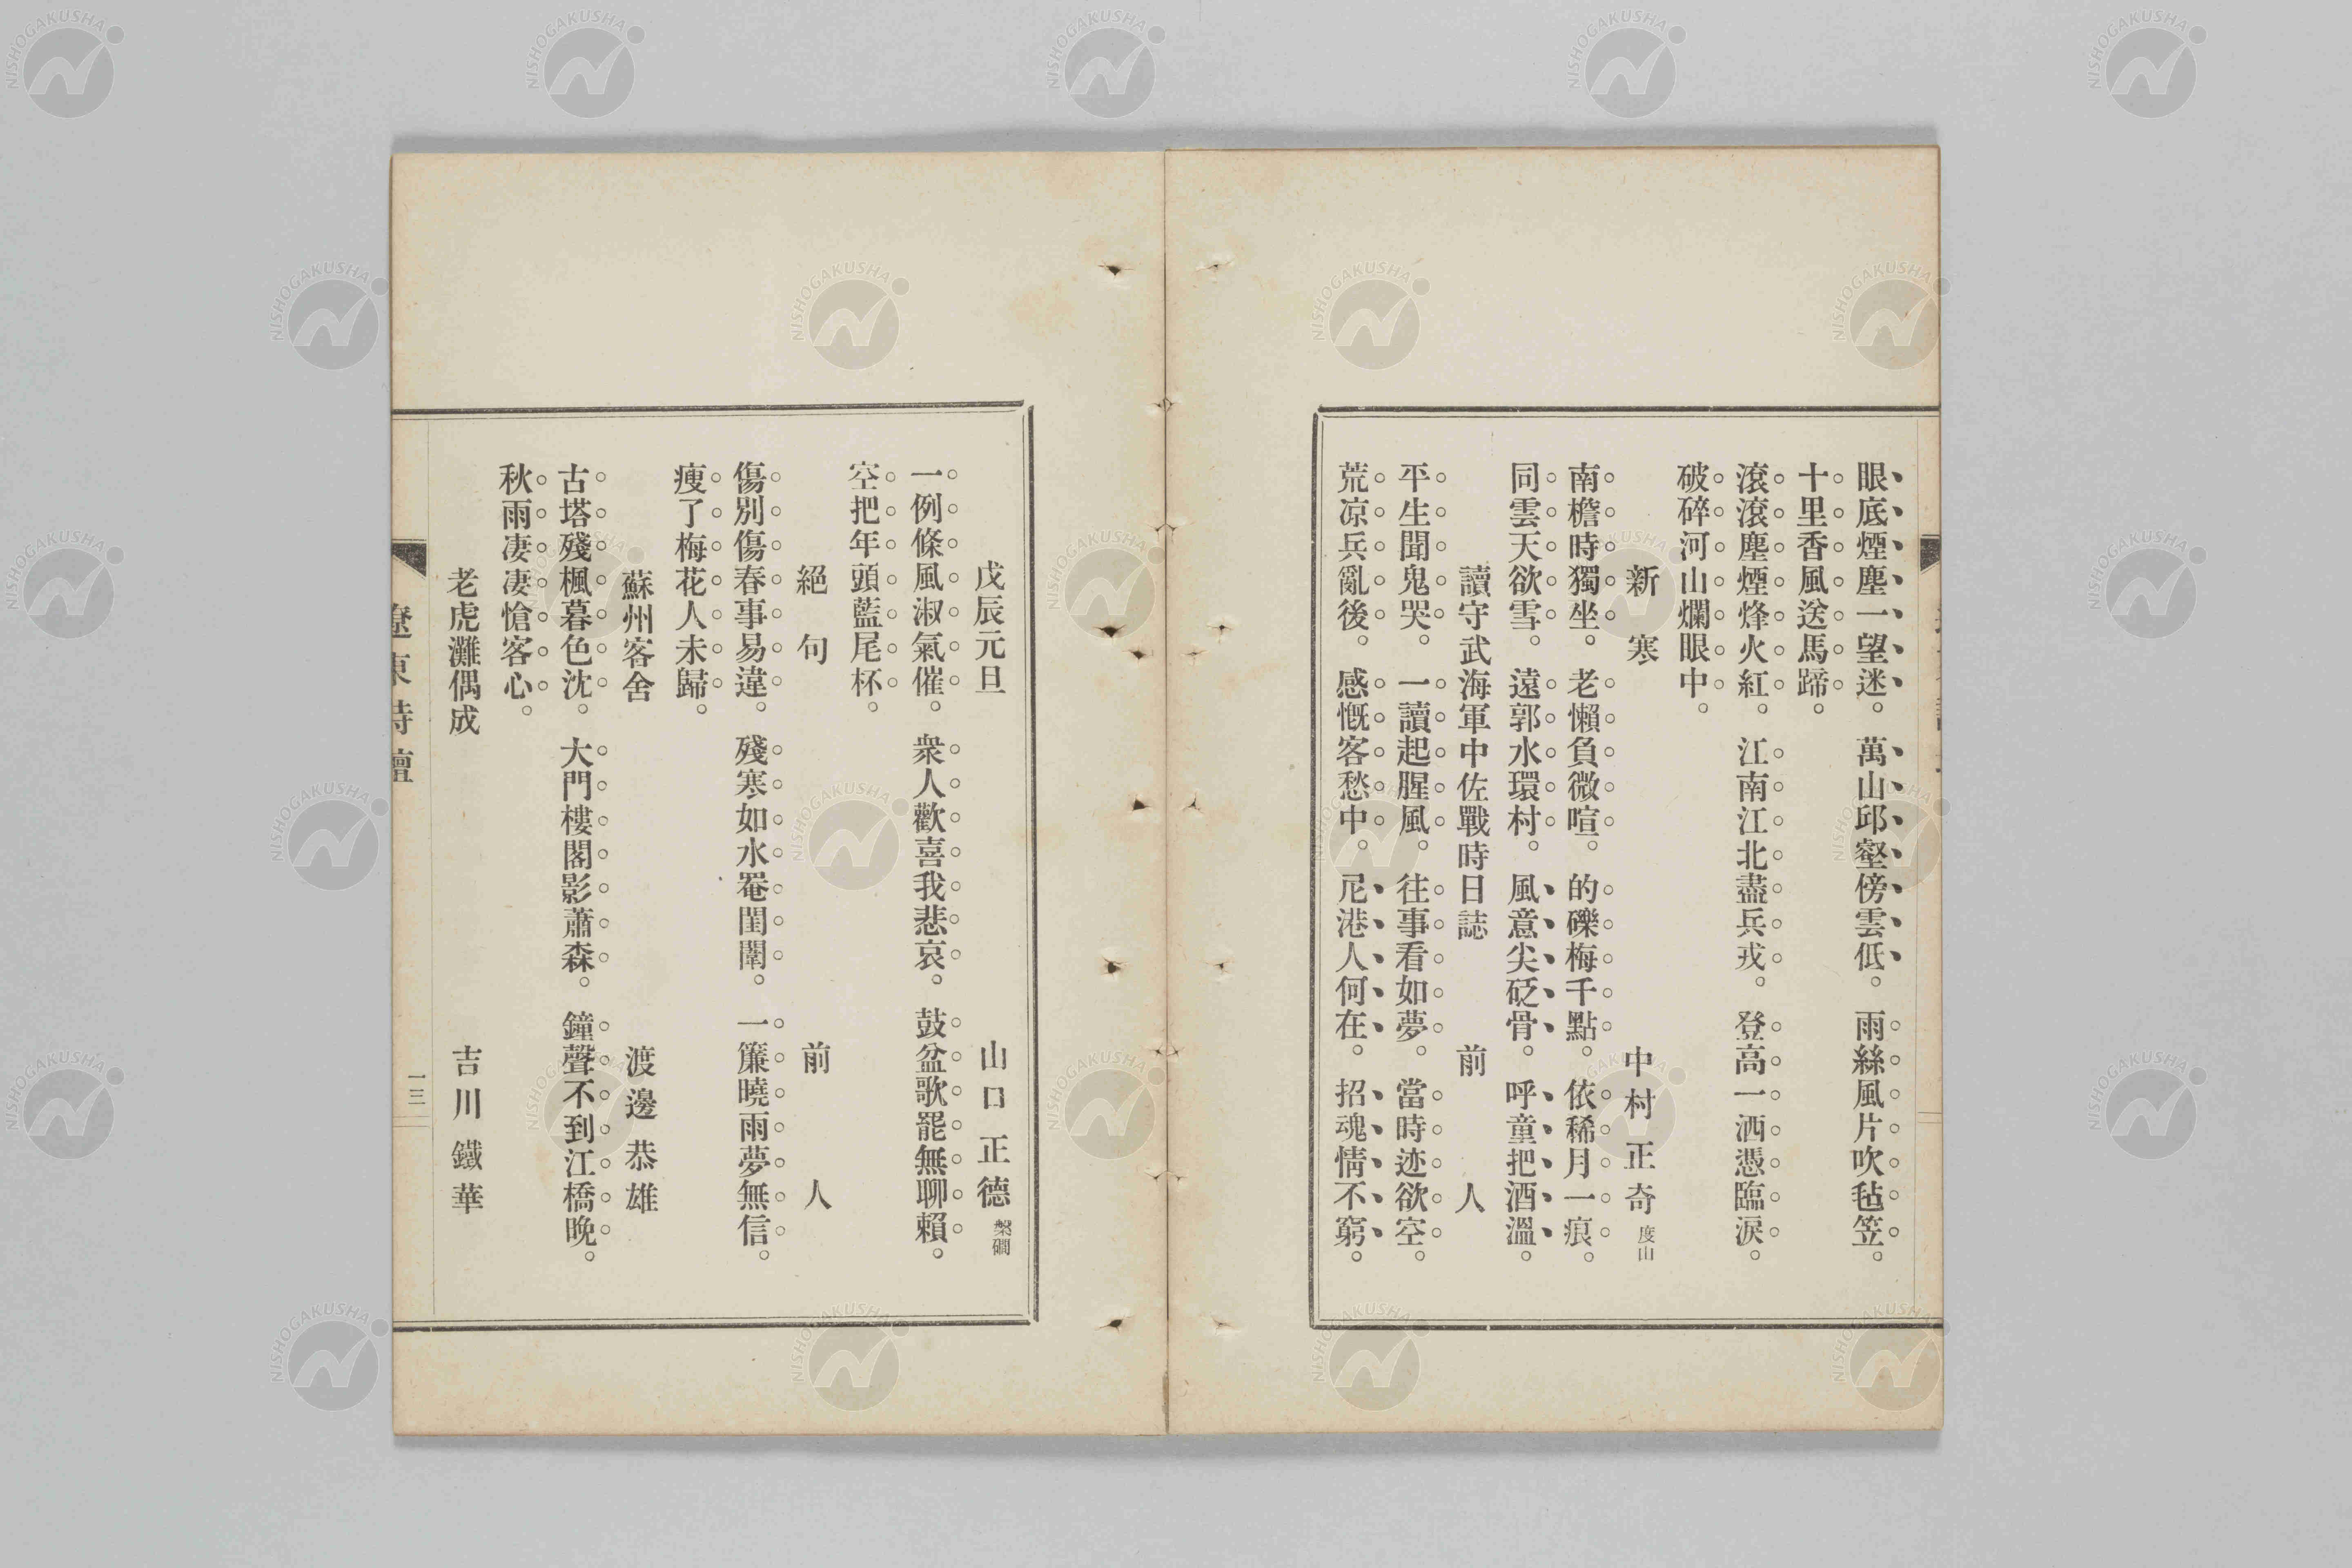 眼底煙塵一望迷。萬山邱壑傍雲低。雨絲風片吹毡笠。
十里香風送馬蹄。
滾滾塵煙烽火紅。江南江北盡兵戎。登高一洒憑臨淚。
破碎河山爛眼中。
新寒 中村正奇 度山
南檐時獨坐。老懶負微喧。的礫梅千點。依稀月一痕。
同雲天欲雪。遠郭水環村。風意尖砭骨。呼童把酒溫。
讀守武海軍中佐戰時日誌 前人
平生聞鬼哭。一讀起腥風。往事看如夢。當時迹欲空。
荒凉兵亂後。感慨客愁中。尼港人何在。招魂情不窮。
戊辰元旦 山口正德
一例條風淑氣催。衆人歡喜我悲哀。鼓盆歌罷無聊賴。
空把年頭藍尾杯。
絕句 前人
傷別傷春事易違。殘寒如水罨閨闈。一簾曉雨夢無信。
瘦了梅花人未歸。
蘇州客舍 渡邊恭雄
古塔殘楓暮色沈。大門樓閣影蕭森。鐘聲不到江橋晚。
秋雨凄凄愴客心。
老虎灘偶成 吉川鐵華
遼東詩壇
一三
NISHOGAKUSHA